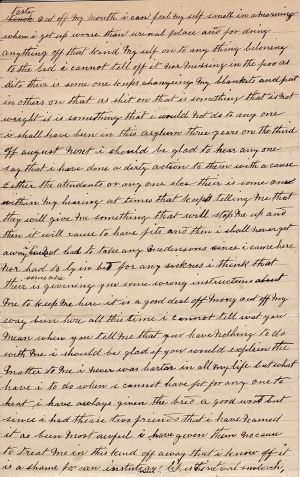 Taste
out off my mouth i can feel my self smell in a morning
when i get up worse than usual place and for doing
anything off that kind my self on to any thing beloning
to the bed i cannot tell off it nor messing in the poo as
there is some one keeps changing my blankets and put
in others on that as shit on that is something that is not
wright is is something that i would not do to any one
i shall have been in this asylum three years on the third
off august next i should be glad to hear any one
say that i have done a dirty action to them with a cause
Either the atendents or any one else their is some one
within my hearing at times that keeps telling me that
they will give me something that will stop me up and
then it will cause to have fits and then i shall never get
away i have not had to take any medensons since i came here
nor had to ly in bed for any sickness i think that
their is some one giving you some wrong instructions about
me to keep me here it is a good deal off money out off my
way been here all this time i cannot tell wat you
mean when you tell me that you have nothing to do
with me i should be glad if you would explain the
matter to me i never was in all my life but what
have i to do when i cannot have pet for any one to
heat i have always given the bred a good but
since i had these two friends that i have named
it as been most awful i have given them no cause
to treat me in this kind off away that i know off it
is a shame for an